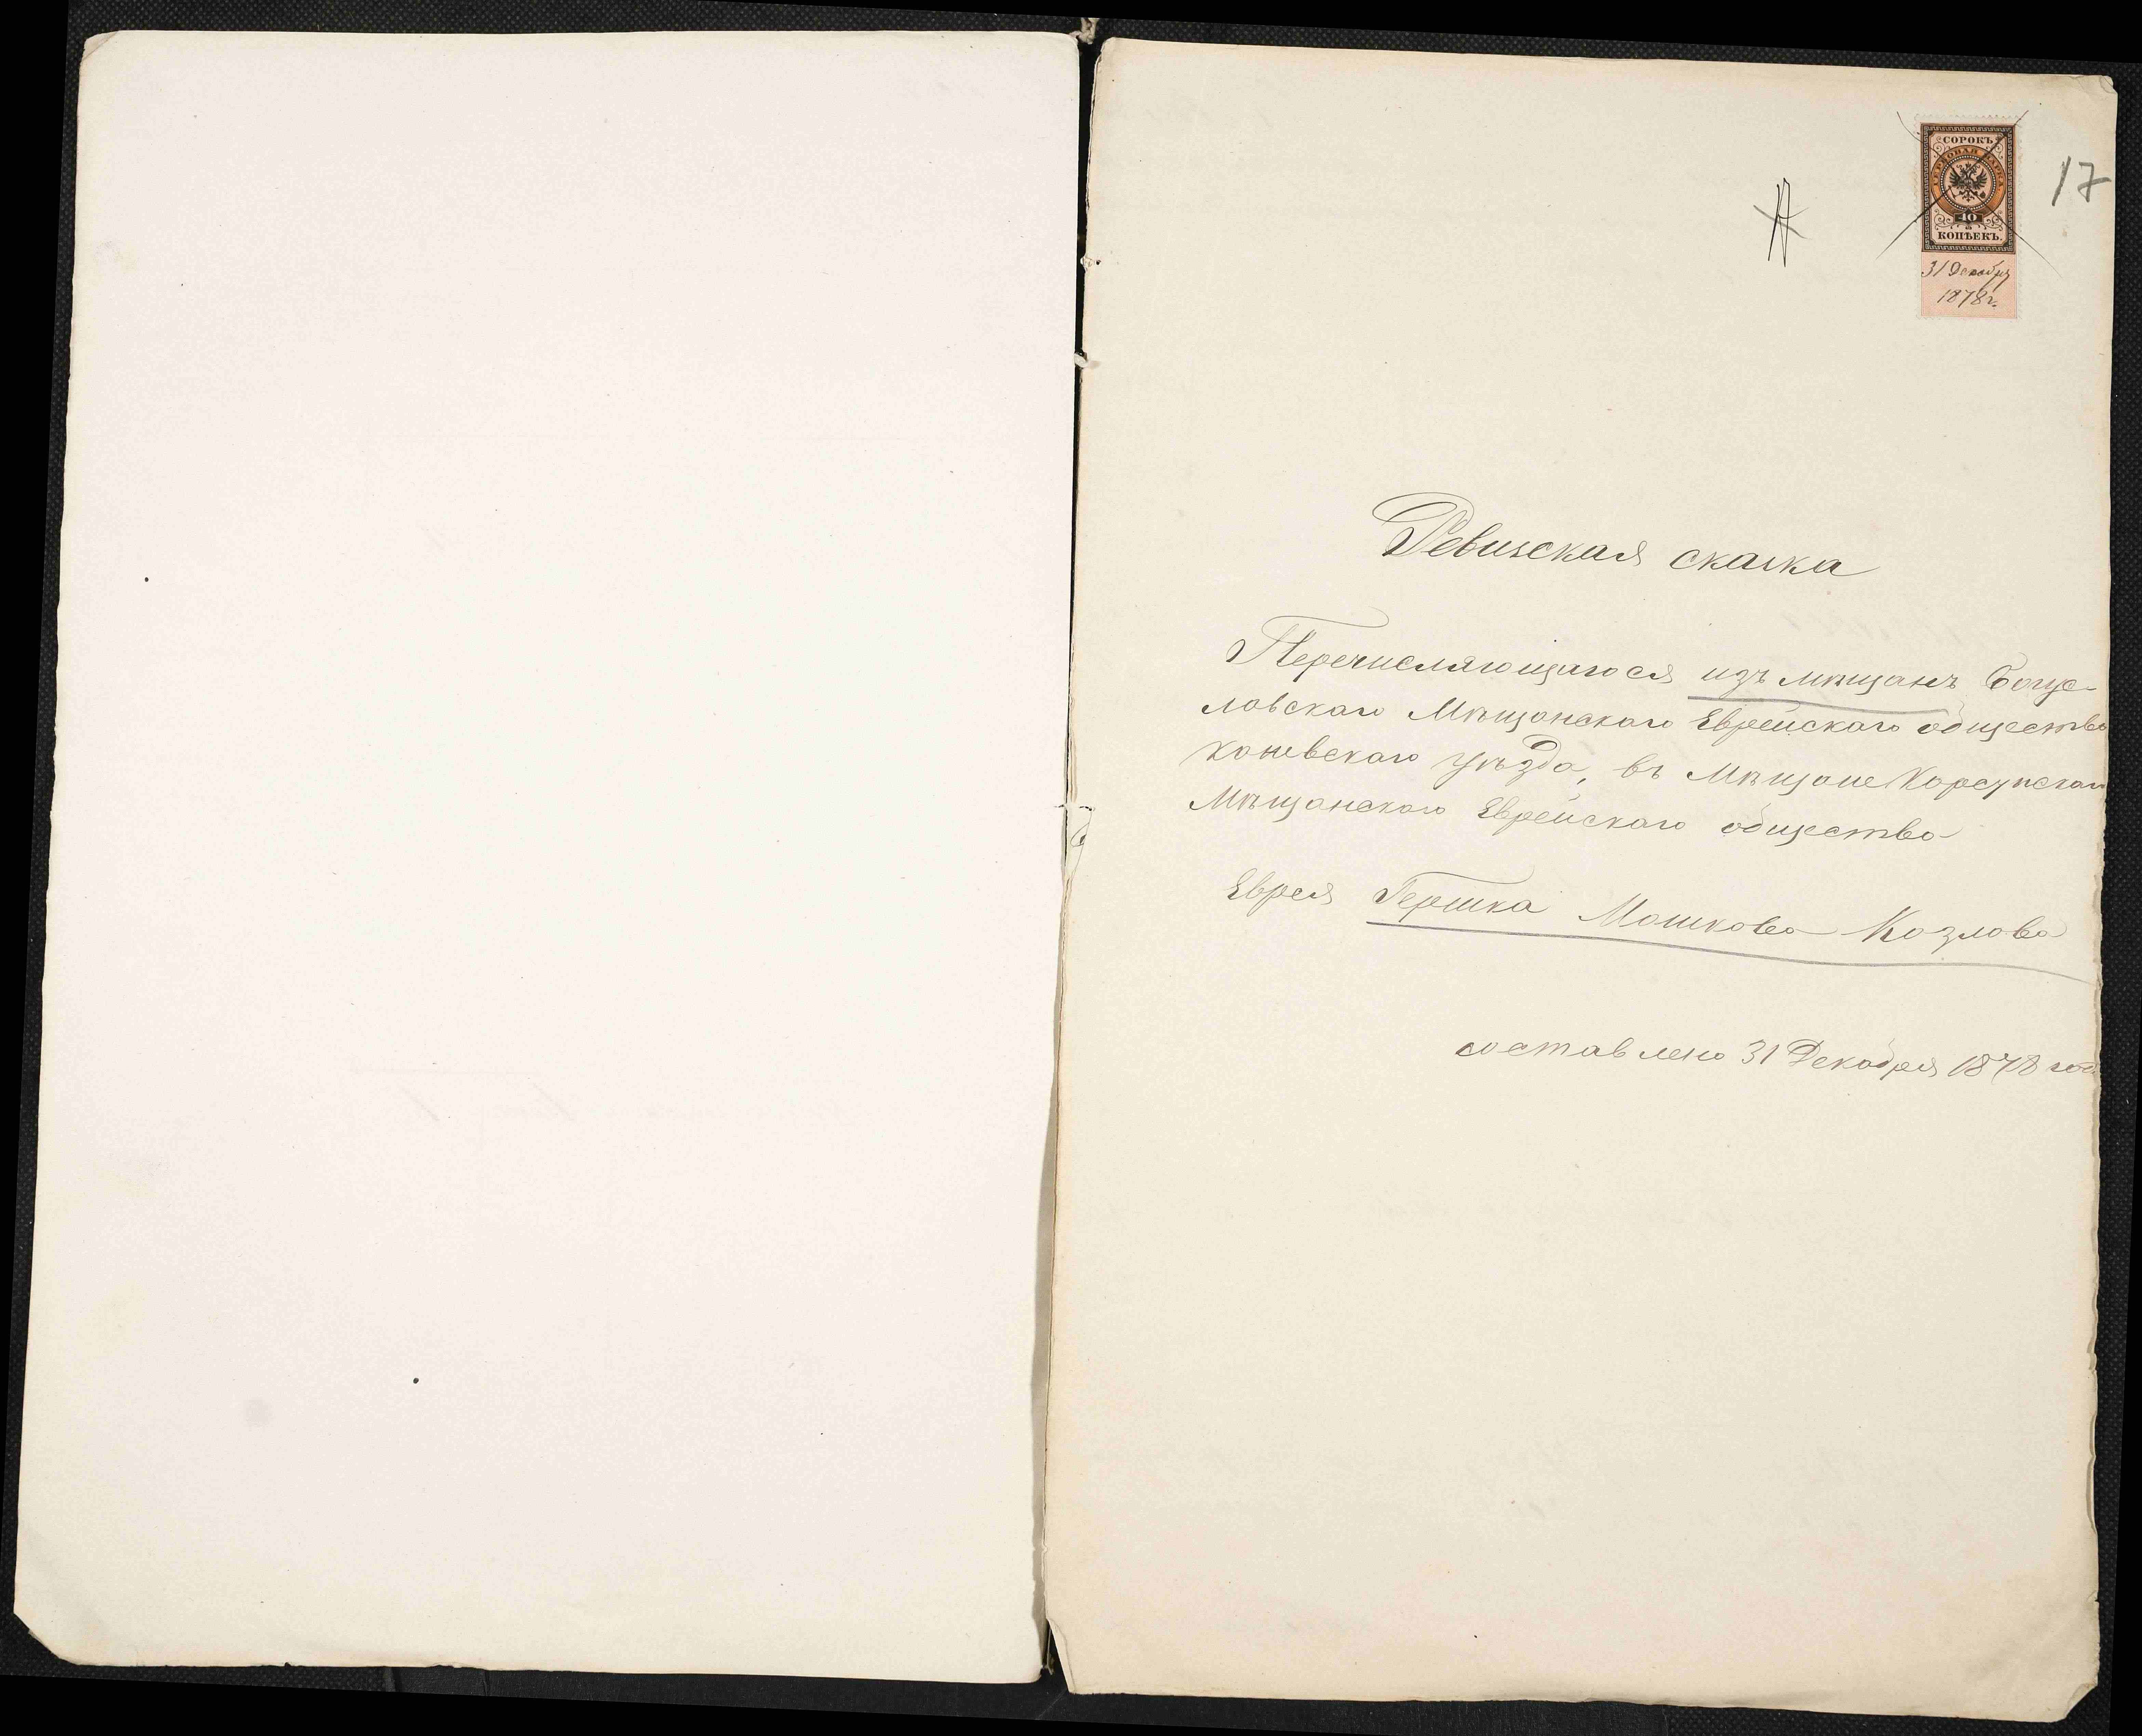 17
СОРОКЪ
ГЕРБОВАЯ МАРКА
40
КОПѢЕКЪ.
31 Декабря
1878 г.
Ревизская сказка
Перечисляющагося изъ мѣщанъ Богус-
ловскаго Мѣщанскаго Еврейскаго общества
Каневскаго уѣзда, въ Мѣщане Корсунскаго
Мѣщанскаго Еврейскаго общества
Еврея Гершка Мошкова Козлова
составлено 31 Декабря 1878 года